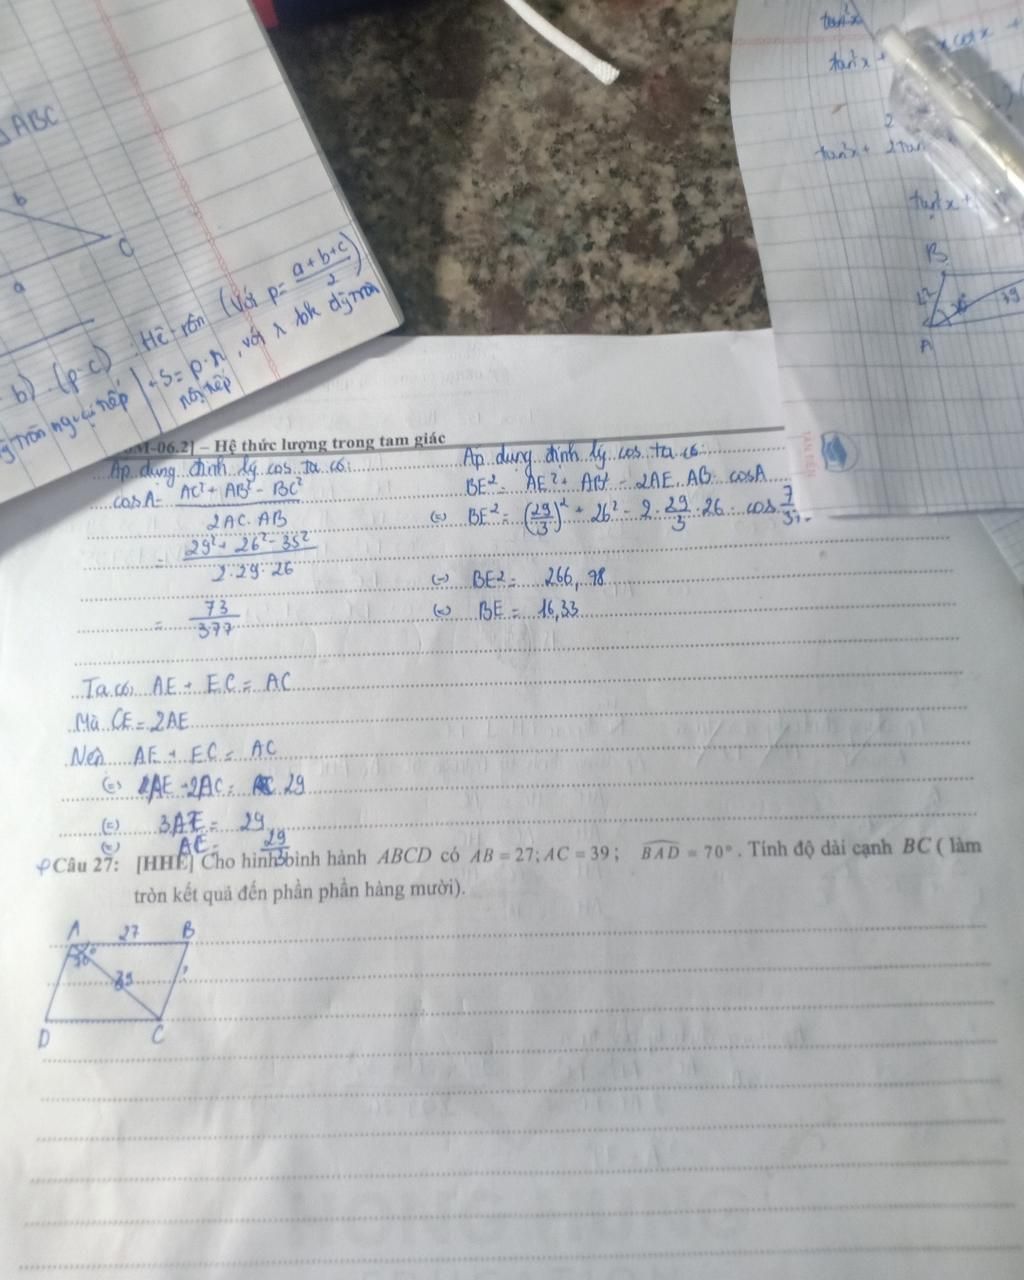 ABC
b
C
a
b) . (p-c) . Hê-rôn (với p= \frac{a+b+c}{2})
+ S= p.r , với r bk đg tròn
nội tiếp
tròn ngoại tiếp
tan²x
tan²x +
x cot x +
2
tan²x + 2tan
tan²x +
B
27
39
A
M-06.2] – Hệ thức lượng trong tam giác
Áp dụng định lý cos ta có:
cosA= \frac{AC²+ AB² - BC²}{2AC. AB}
= \frac{29² + 26² - 35²}{2.29.26}
= \frac{73}{377}
Áp dụng định lý cos ta có:
BE² = AE² + AB² - 2AE. AB. cosA
(=) BE² = (\frac{29}{3})² + 26² - 2. \frac{29}{3}. 26. cos
(=) BE² = 266,98
(=) BE = 16,33
Ta có, AE + EC = AC
Mà CE = 2AE
Nên AE + EC = AC
(=) AE + 2AC = 29
(=) 3AE = 29
(=) AE = \frac{29}{3}
Câu 27: [HHE] Cho hình bình hành ABCD có AB = 27; AC = 39 ; \widehat{BAD} = 70°. Tính độ dài cạnh BC ( làm
tròn kết quả đến phần phần hàng mười).
A 27 B
70°
39 ?
D C